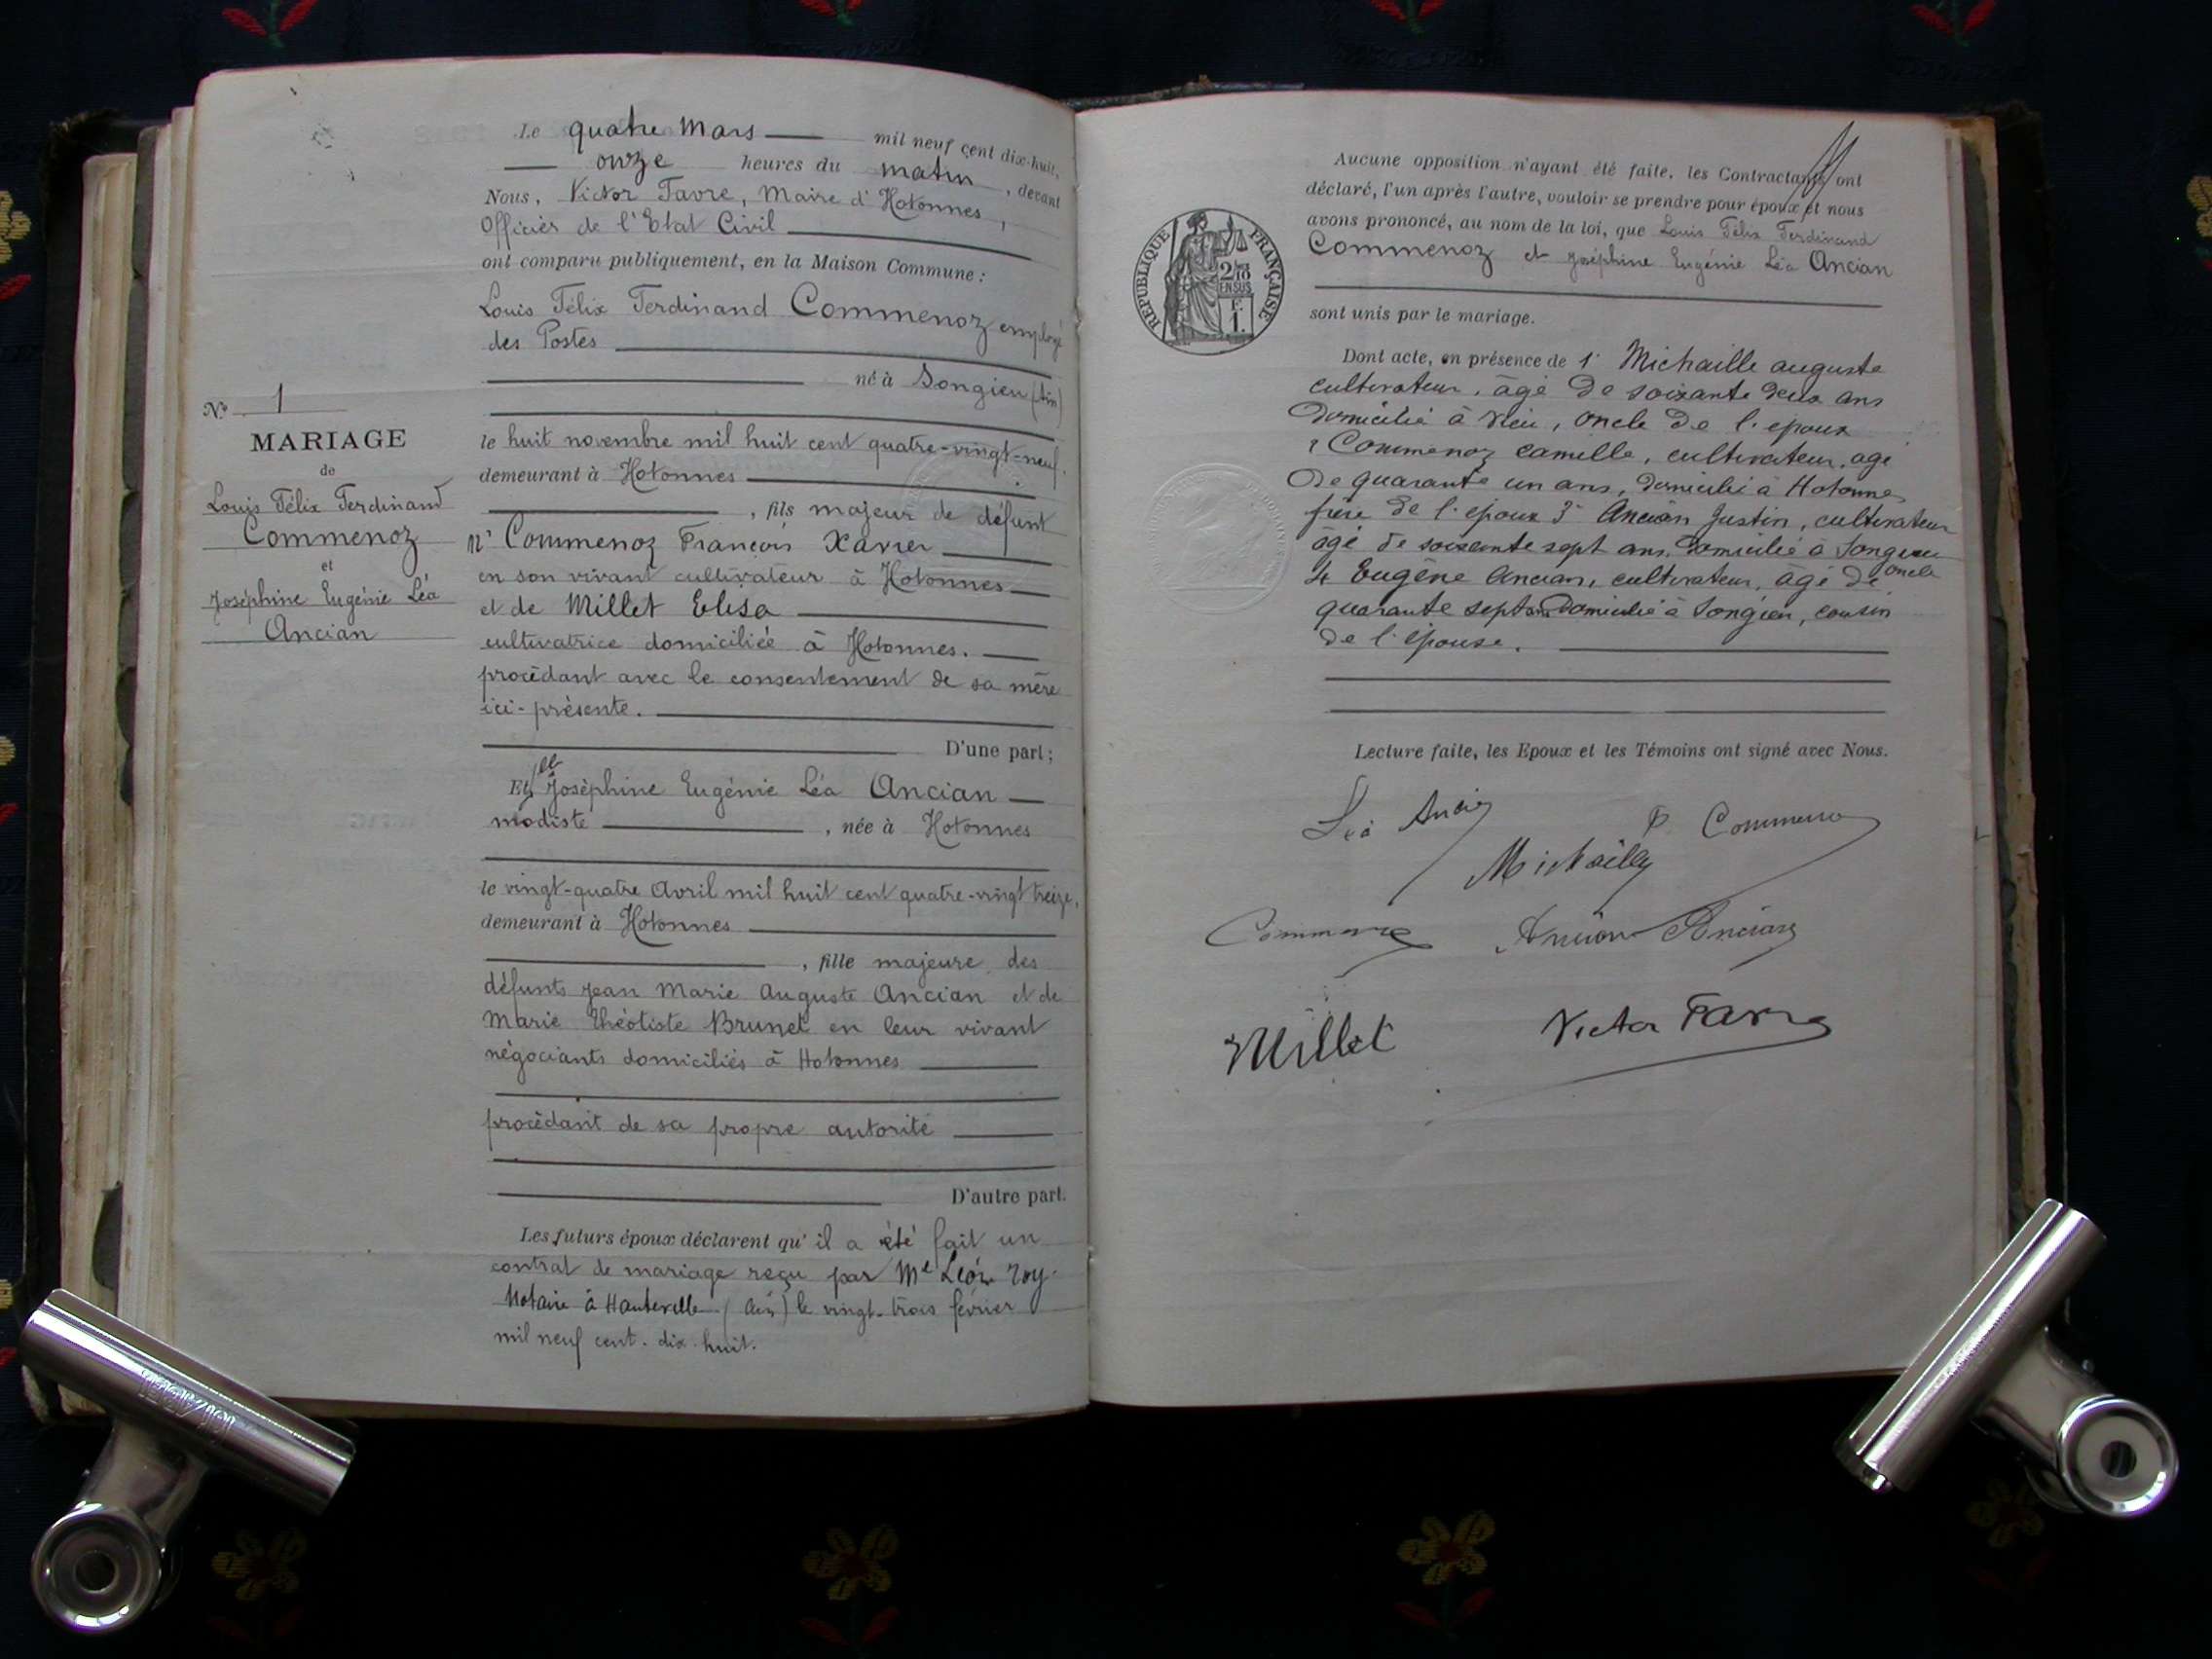 Le quatre Mars mil neuf cent dix-huit,
onze heures du matin, devant
Nous, Victor Favre, Maire d'Hotonnes,
Officier de l'Etat Civil
ont comparu publiquement, en la Maison Commune :
Louis Félix Ferdinand Commenoz employé
des Postes
né à Songieu (Ain)
le huit novembre mil huit cent quatre-vingt-neuf.
demeurant à Hotonnes
, fils majeur de défunt
Commenoz François Xavier
en son vivant cultivateur à Hotonnes
et de Millet Elisa
cultivatrice domiciliée à Hotonnes.
procédant avec le consentement de sa mère
ici-présente.
D'une part ;
Et Joséphine Eugénie Léa Ancian
modiste, née à Hotonnes
le vingt-quatre Avril mil huit cent quatre-vingt treize,
demeurant à Hotonnes
, fille majeure des
défunts Jean Marie Auguste Ancian et de
Marie Théotiste Brunet en leur vivant
négociants domiciliés à Hotonnes
procédant de sa propre autorité
D'autre part.
Les futurs époux déclarent qu'il a été fait un
contrat de mariage reçu par Me Léon Roy
Notaire à Hauteville (Ain) le vingt-trois février
mil neuf cent. dix-huit.
N° 1
MARIAGE
de
Louis Félix Ferdinand
Commenoz
et
Joséphine Eugénie Léa
Ancian
RÉPUBLIQUE FRANÇAISE
2/10
EN SUS
F.
1.
Aucune opposition n'ayant été faite, les Contractants ont
déclaré, l'un après l'autre, vouloir se prendre pour époux et nous
avons prononcé, au nom de la loi, que Louis Félix Ferdinand
Commenoz et Joséphine Eugénie Léa Ancian
sont unis par le mariage.
Dont acte, en présence de 1° Michaille auguste
cultivateur, âgé de soixante deux ans
domicilié à Vieu, oncle de l'epoux
2 Commenoz camille, cultivateur, agé
de quarante un ans, domicilié à Hotonnes
frère de l'epoux 3° Ancian Justin, cultivateur
âgé de soixante sept ans, domicilié à Songieu
oncle
4 Eugène Ancian, cultivateur, âgé de
quarante sept ans domicilié à Songieu, cousin
de l'épouse.
Lecture faite, les Epoux et les Témoins ont signé avec Nous.
Léa Ancian
Commenoz
Michaille
Commenoz
Ancian Ancian
Millet
Victor Favre